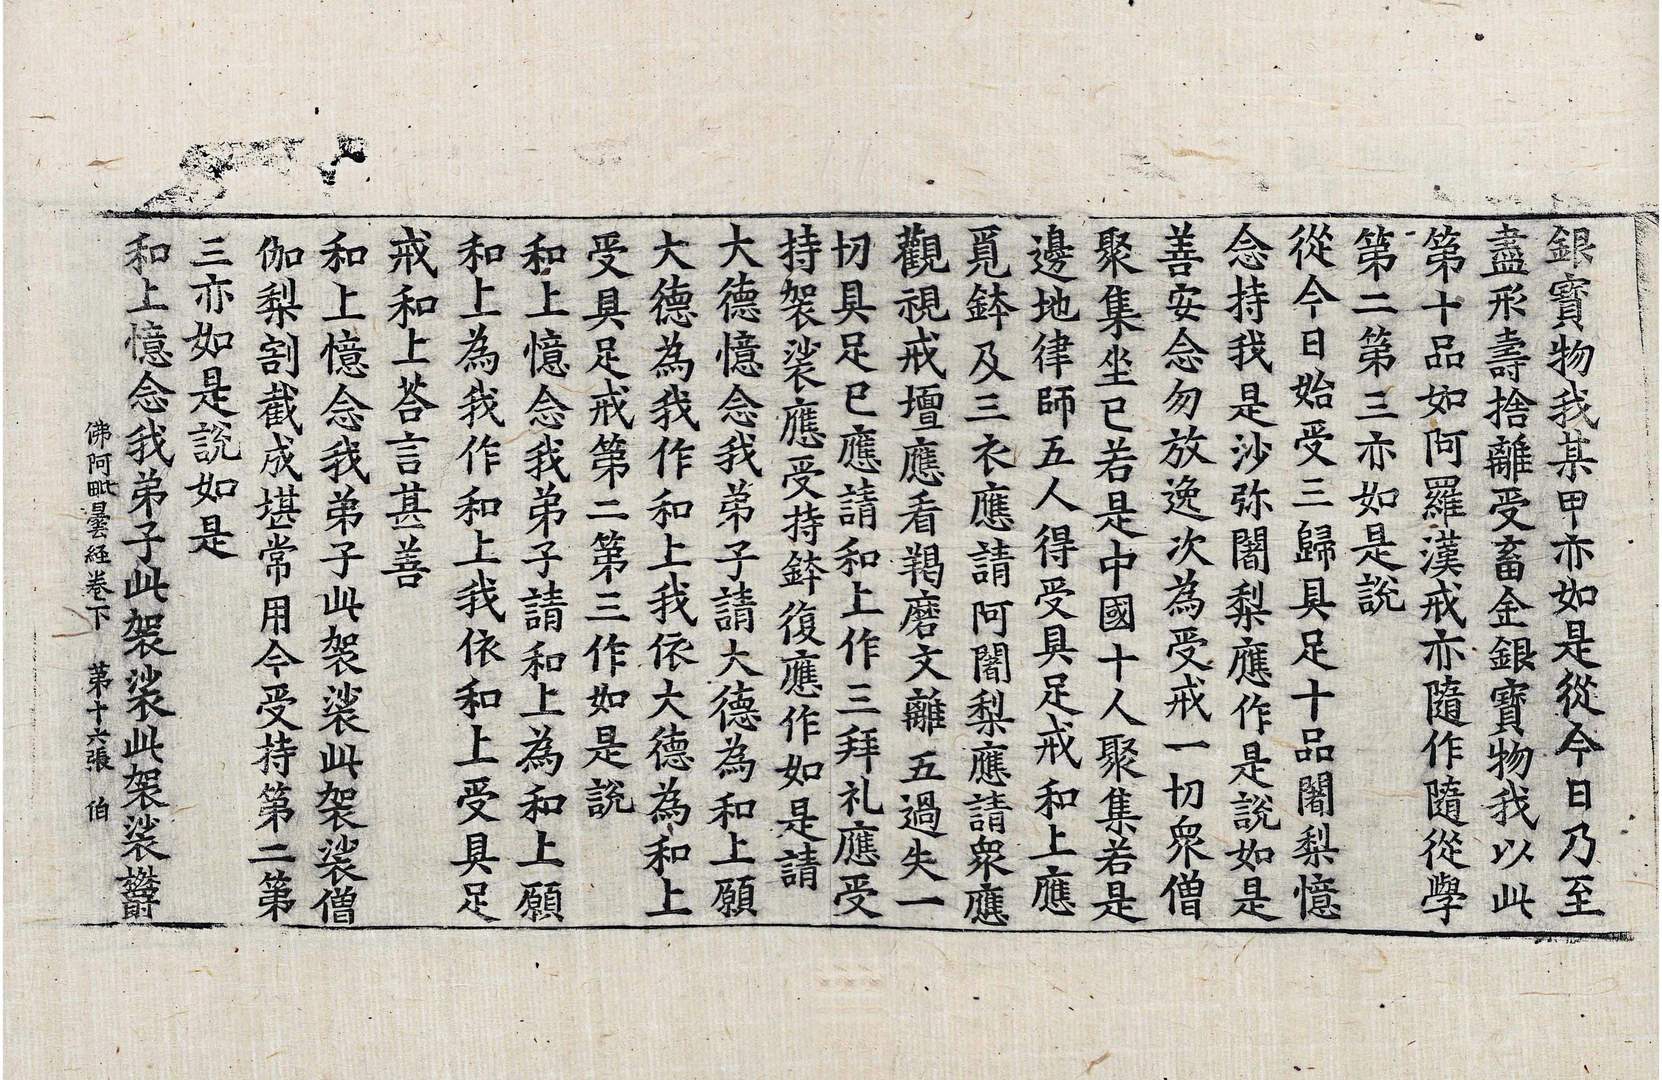 銀寶物我某甲亦如是從今日乃至
盡形壽捨離受畜金銀寶物我以此
第十品如阿羅漢戒亦隨作隨從學
第二第三亦如是說
從今日始受三歸具足十品闍梨憶
念持我是沙弥闍梨應作是說如是
善安念勿放逸次為受戒一切衆僧
聚集坐已若是中國十人聚集若是
邊地律師五人得受具足戒和上應
覓鉢及三衣應請阿闍梨應請衆應
觀視戒壇應看羯磨文離五過失一
切具足已應請和上作三拜礼應受
持袈裟應受持鉢復應作如是請
大德憶念我弟子請大德為和上願
大德為我作和上我依大德為和上
受具足戒第二第三作如是說
和上憶念我弟子請和上為和上願
和上為我作和上我依和上受具足
戒和上荅言甚善
和上憶念我弟子此袈裟此袈裟僧
伽梨割截成堪常用今受持第二第
三亦如是說如是
和上憶念我弟子此袈裟此袈裟欝
佛阿毗曇経卷下 第十六張 伯